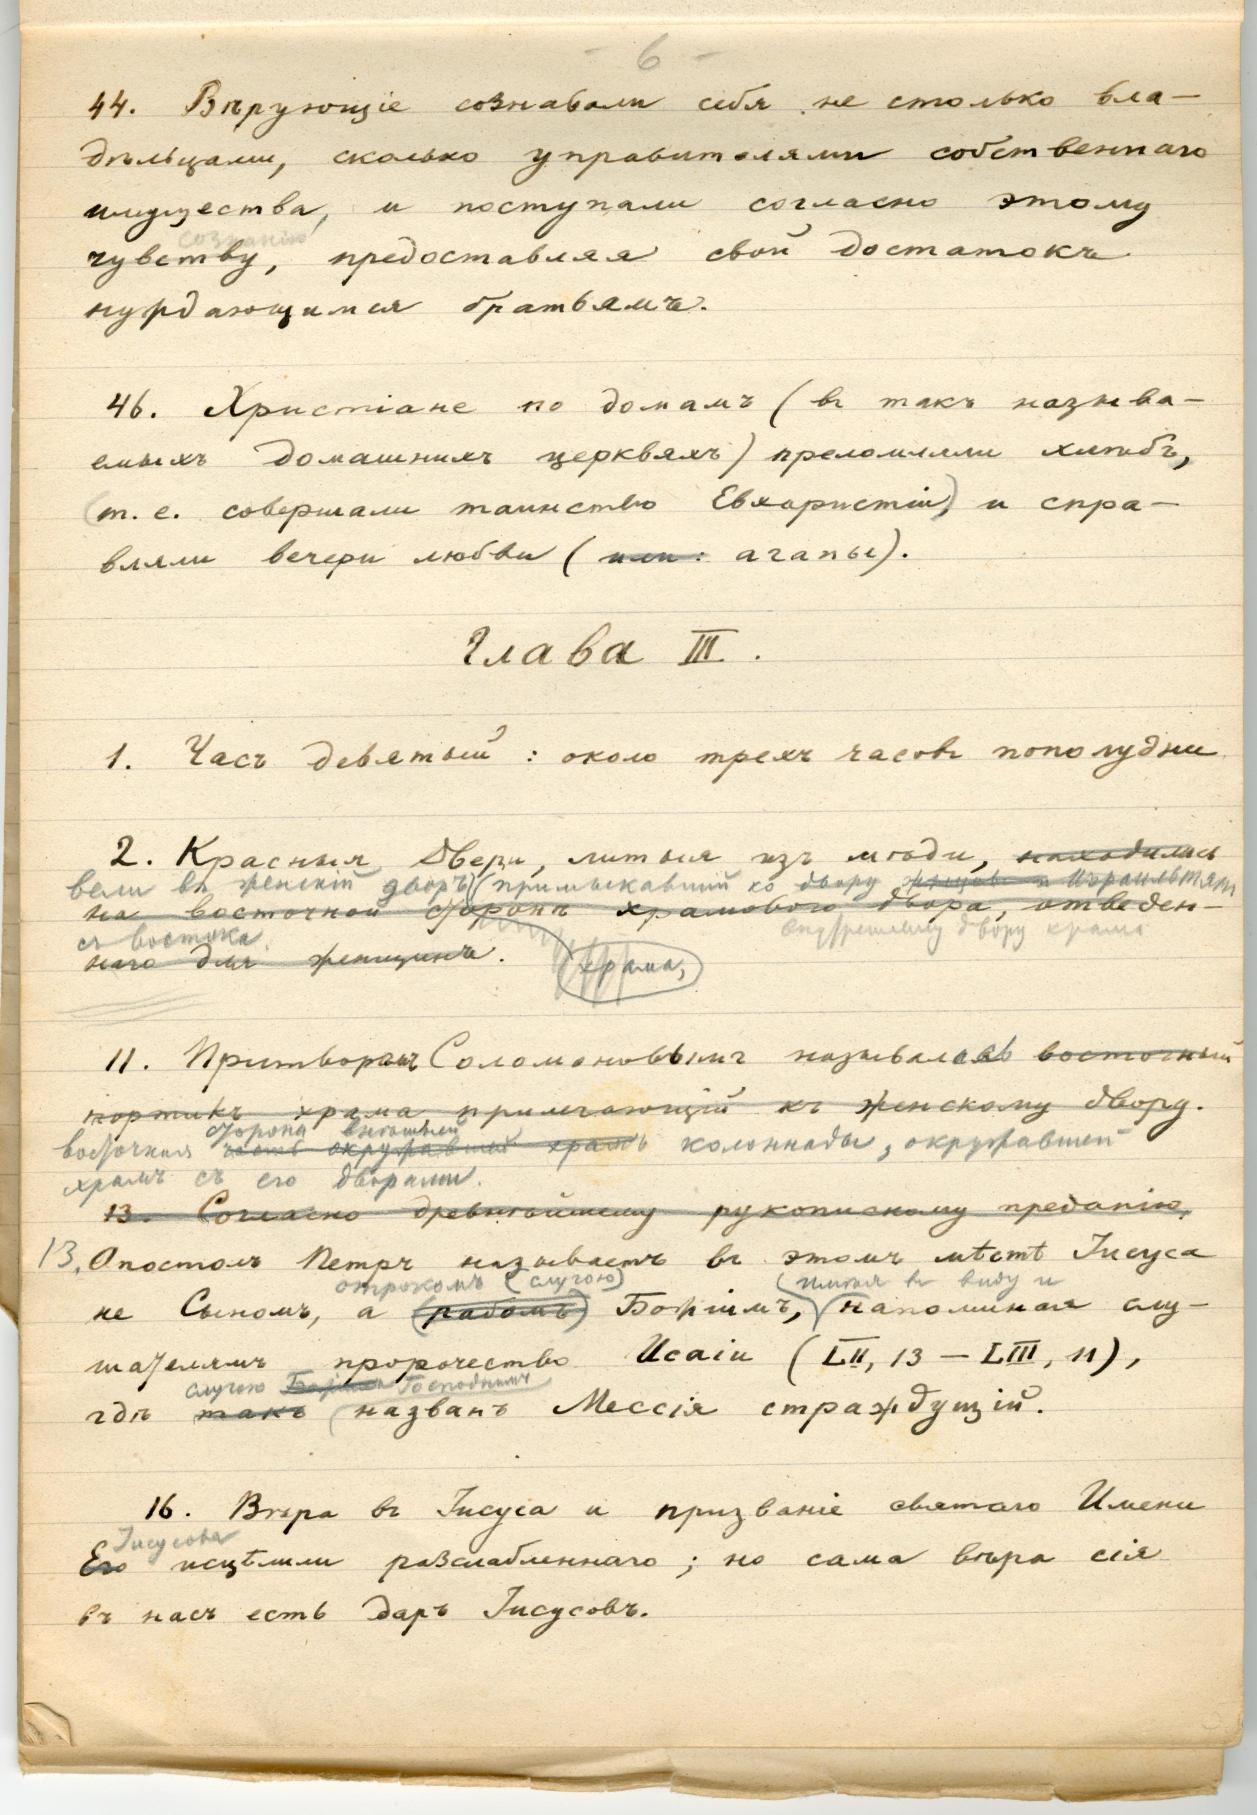 - 6 -
44. Вѣрующіе сознавали себя не столько вла-
дѣльцами, сколько управителями собственнаго
имущества, и поступали согласно этому
сознанію
чувству, предоставляя свой достатокъ
нуждающимся братьямъ.
46. Христіане по домамъ (въ такъ называ-
емыхъ домашнихъ церквяхъ) преломляли хлѣбъ,
(т. е. совершали таинство Евхаристіи) и спра-
вляли вечери любви (или: агапы).
Глава III.
1. Часъ девятый: около трехъ часовъ пополудни
2. Красныя двери, литыя изъ мѣди, находились
вели въ женскій дворъ (примыкавшій ко двору Израильтянъ
на восточной сторонѣ храмового двора, отведен-
съ востока внутреннему двору храма
наго для женщинъ. храма,
11. Притворомъ Соломоновымъ называлась восточный
портикъ храма прилегающій къ женскому двору.
сторона внѣшней
восточная часть окружавшей храмъ колоннады, окружавшей
храмъ съ его дворами.
13. Согласно древнѣйшему рукописному преданію,
13. Апостолъ Петръ называетъ въ этомъ мѣстѣ Іисуса
отрокомъ (слугою) (имѣя въ виду и
не Сыномъ, а (рабомъ) Божіимъ, напоминая слу-
шателямъ пророчество Исаіи (LII, 13 — LIII, 11),
слугою Божіимъ Господнимъ
гдѣ такъ названъ Мессія страждущій.
16. Вѣра въ Іисуса и призваніе святаго Имени
Іисусова
Его исцѣлили разслабленнаго; но сама вѣра сія
въ насъ есть даръ Іисусовъ.